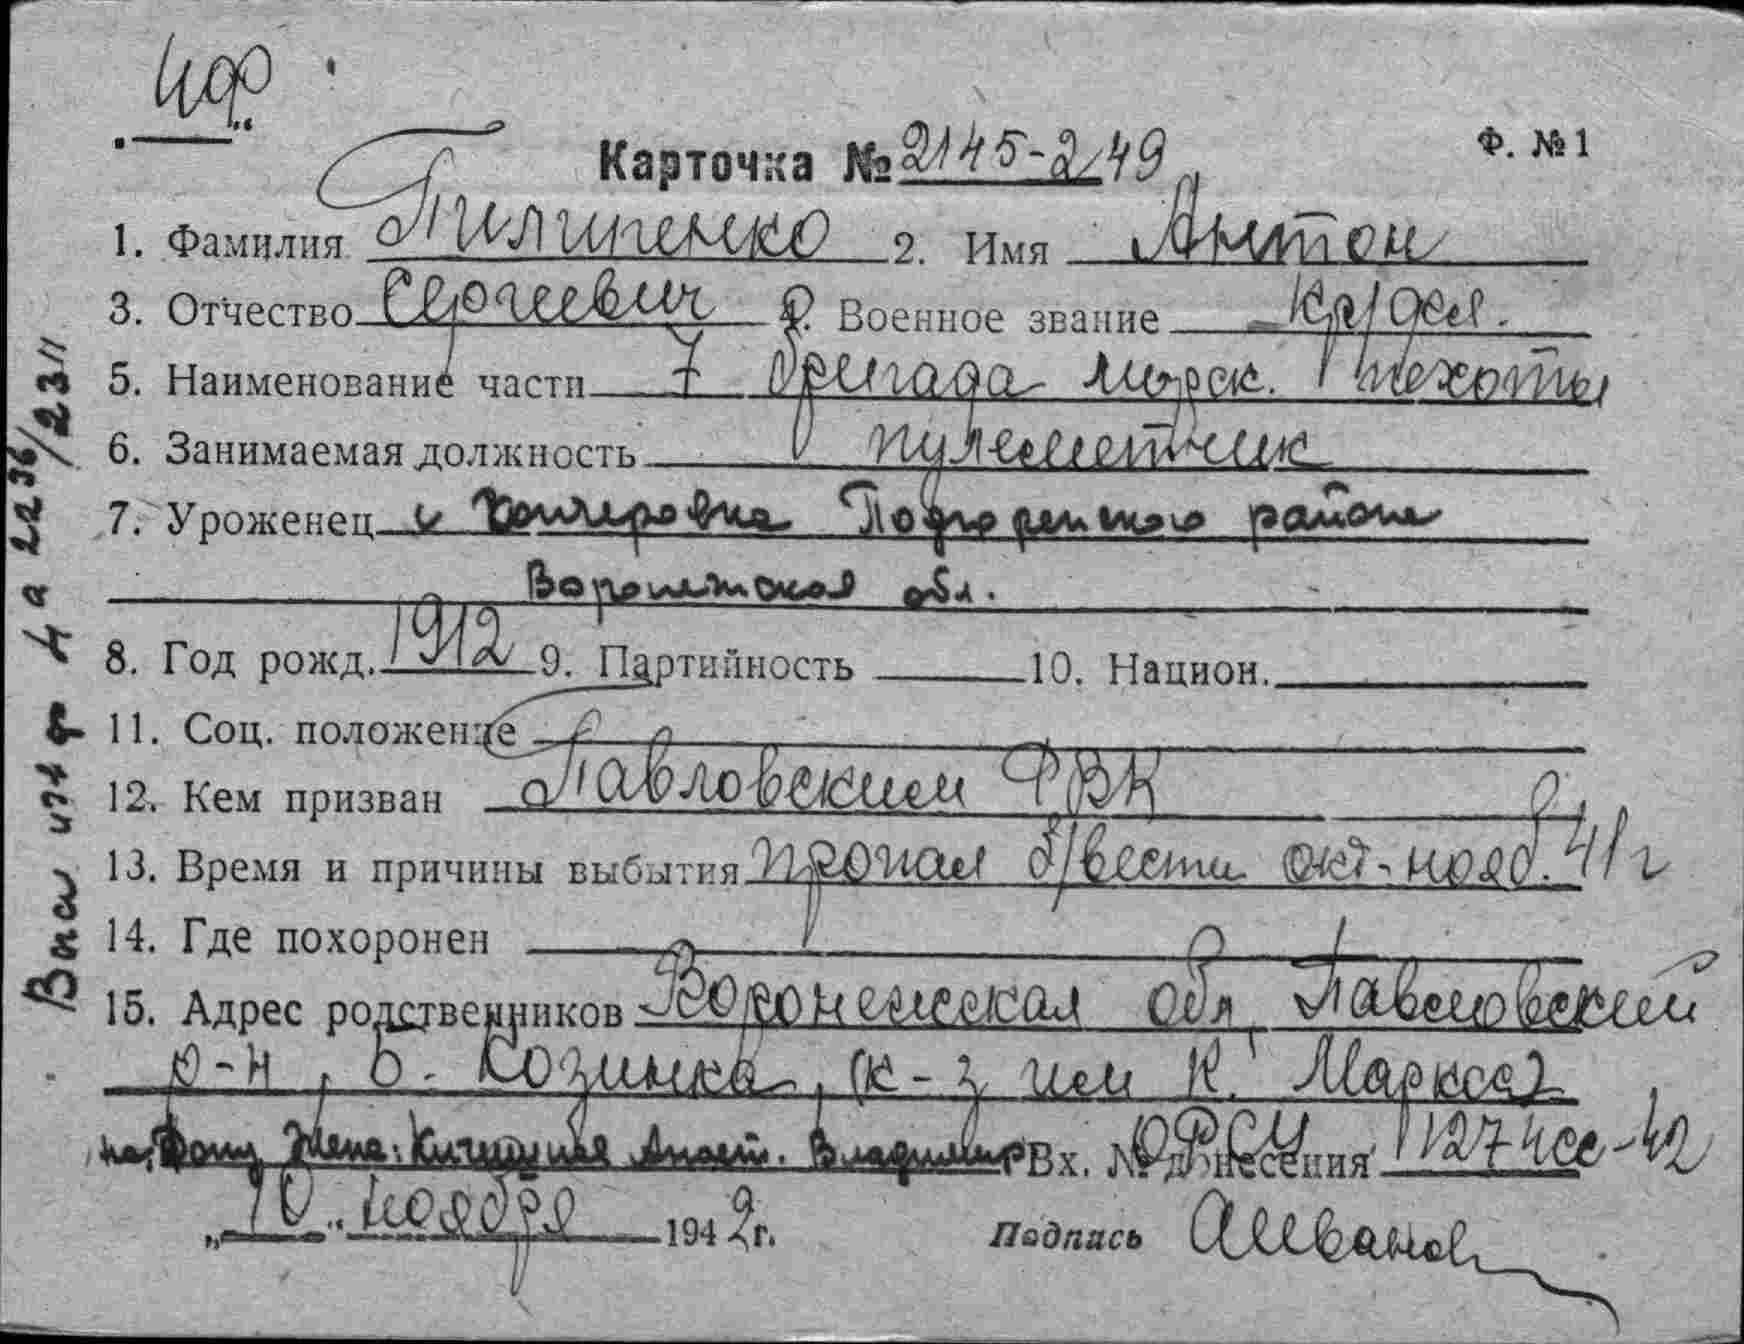 Ф. №1
Карточка № 2145-249
1. Фамилия Пилипенко 2. Имя Антон
3. Отчество Сергеевич Военное звание кр/фл.
5. Наименование части 7 бригада морск. пехоты
6. Занимаемая должность пулеметчик
7. Уроженец с Подгоренского района
Воронежская обл.
8. Год рожд. 1912 9. Партийность 10. Национ.
11. Соц. положение
12. Кем призван Павловским РВК
13. Время и причины выбытия пропал б/вести окт-нояб. 41 г
14. Где похоронен
15. Адрес родственников Воронежская обл, Павловский
р-н, Б. Козинка, (к-з им К. Маркса)
Жена: Анаст. Владимир Вх. № донесения 1127 4сс-42
„10" ноября 1942 г. Подпись